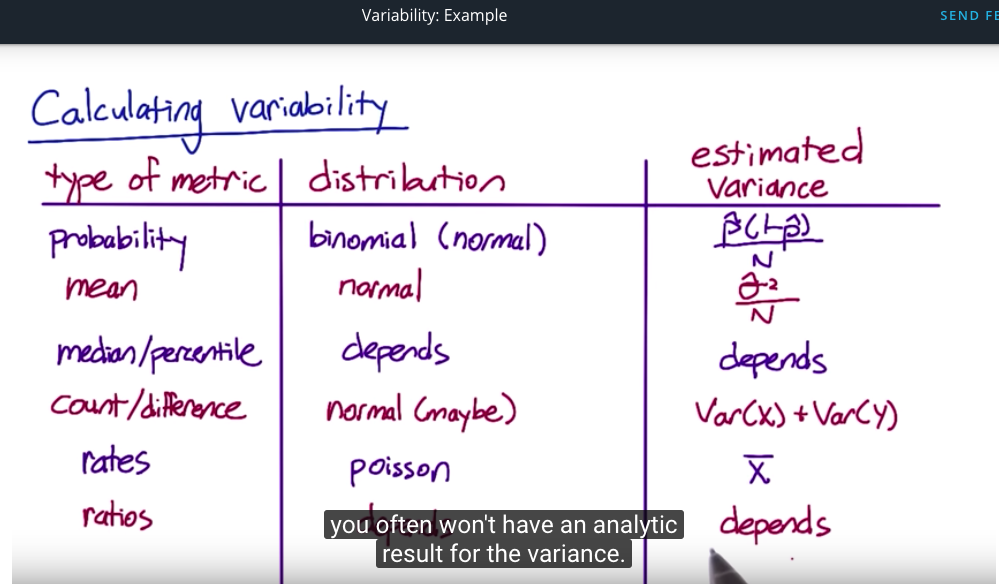 Variability: Example
SEND FE
Calculating variability
type of metric | distribution | estimated variance
probability | binomial (normal) | p̂(1-p̂)/N
mean | normal | σ̂²/N
median/percentile | depends | depends
count/difference | normal (maybe) | Var(X) + Var(Y)
rates | poisson | X̄
ratios | depends | depends
you often won't have an analytic
result for the variance.